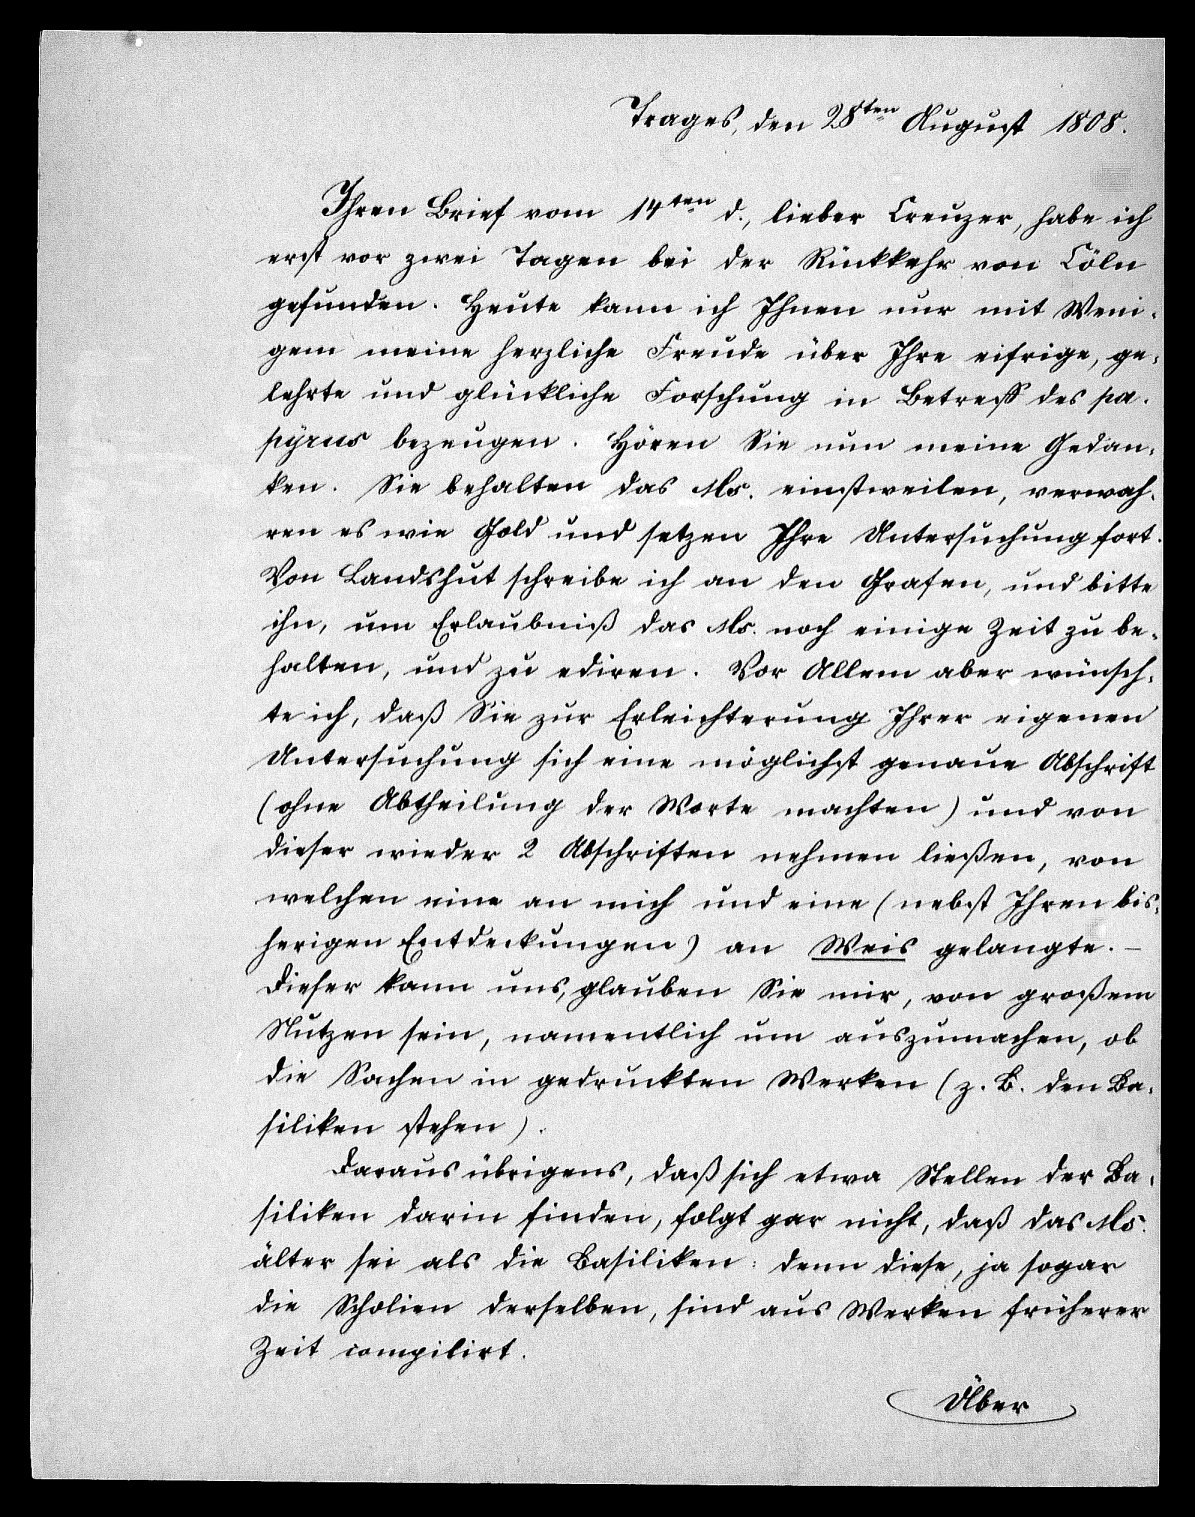 Trages, den 28ten August 1808.
Ihren Brief vom 14ten d., lieber Creuzer, habe ich
erst vor zwei Tagen bei der Rückkehr von Cöln
gefunden. Heute kann ich Ihnen nur mit Weni-
gem meine herzliche Freude über Ihre eifrige, ge-
lehrte und glückliche Forschung in Betreff des pa-
pyrus bezeugen. Hören Sie nun meine Gedan-
ken. Sie behalten das Ms. einstweilen, verwah-
ren es wie Gold und setzen Ihre Untersuchung fort.
Von Landshut schreibe ich an den Grafen, und bitte
ihn, um Erlaubniß das Ms. noch einige Zeit zu be-
halten, und zu ediren. Vor Allem aber wünsch-
te ich, daß Sie zur Erleichterung Ihrer eigenen
Untersuchung sich eine möglichst genaue Abschrift
(ohne Abtheilung der Worte machten) und von
dieser wieder 2 Abschriften nehmen ließen, von
welchen eine an mich und eine (nebst Ihren bis-
herigen Entdeckungen) an Weis gelangte. –
Dieser kann uns, glauben Sie mir, von großem
Nutzen sein, namentlich um auszumachen, ob
die Sachen in gedruckten Werken (z. B. den Ba-
siliken stehen).
Daraus übrigens, daß sich etwa Stellen der Ba-
siliken darin finden, folgt gar nicht, daß das Ms.
älter sei als die Basiliken: denn diese, ja sogar
die Scholien derselben, sind aus Werken früherer
Zeit compilirt.
Über